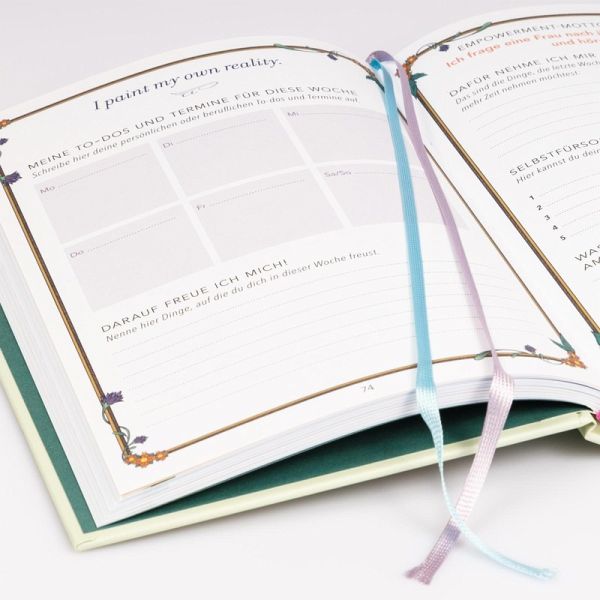 I paint my own reality.
MEINE TO-DOS UND TERMINE FÜR DIESE WOCHE
Schreibe hier deine persönlichen oder beruflichen To-dos und Termine auf
Mo
Di
Mi
Do
Fr
Sa/So
DARAUF FREUE ICH MICH!
Nenne hier Dinge, auf die du dich in dieser Woche freust.
74
EMPOWERMENT-MOTTO
Ich frage eine Frau nach
und hö
DAFÜR NEHME ICH MIR
Das sind die Dinge, die letzte Woche
mehr Zeit nehmen möchtest:
SELBSTFÜRSO
Hier kannst du dein
1
2
3
4
5
WA
AM